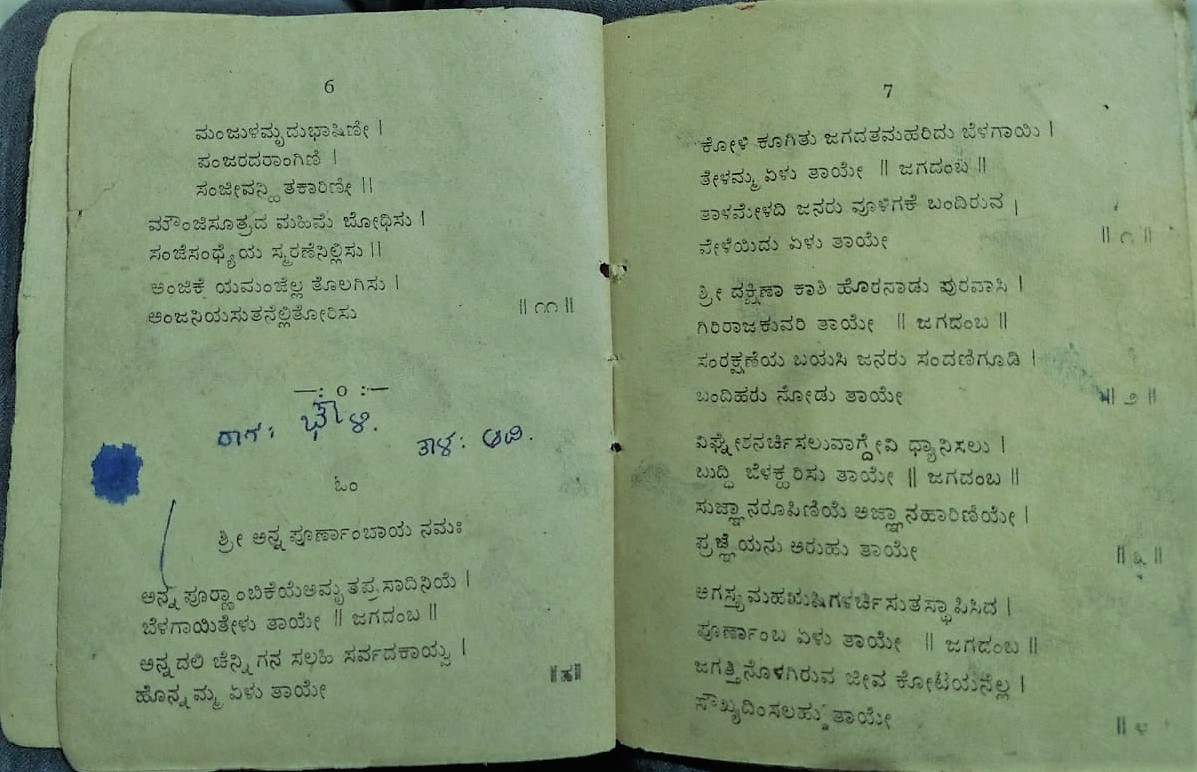 6
ಮಂಜುಳಮೃದುಭಾಷಿಣೀ |
ಪಂಜರದರಾಂಗಿಣಿ |
ಸಂಜೀವನ್ಹಿತಕಾರಿಣೀ ||
ಮೌಂಜಿಸೂತ್ರದ ಮಹಿಮೆ ಬೋಧಿಸು |
ಸಂಜೆಸಂಧ್ಯೆಯ ಸ್ಮರಣೆನಿಲ್ಲಿಸು ||
ಅಂಜಿಕೆ ಯಮಂಜೆಲ್ಲ ತೊಲಗಿಸು |
ಅಂಜನಿಯಸುತನೆಲ್ಲಿತೋರಿಸು || ೧೧ ||
—: ೦ :—
ರಾಗ: ಭೌಳಿ. ತಾಳ: ಆದಿ.
ಓಂ
ಶ್ರೀ ಅನ್ನಪೂರ್ಣಾಂಬಾಯ ನಮಃ
ಅನ್ನಪೂರ್ಣಾಂಬಿಕೆಯೆಅಮೃತಪ್ರಸಾದಿನಿಯೆ |
ಬೆಳಗಾಯಿತೇಳು ತಾಯೇ || ಜಗದಂಬ ||
ಅನ್ನದಲಿ ಚೆನ್ನಿಗನ ಸಲಹಿ ಸರ್ವದಕಾಯ್ವ |
ಹೊನ್ನಮ್ಮ ಏಳು ತಾಯೇ
7
ಕೋಳಿ ಕೂಗಿತು ಜಗದತಮಹರಿದು ಬೆಳಗಾಯಿ |
ತೇಳಮ್ಮ ಏಳು ತಾಯೇ || ಜಗದಂಬ ||
ತಾಳಮೇಳದಿ ಜನರು ವೂಳಿಗಕೆ ಬಂದಿರುವ |
ವೇಳೆಯಿದು ಏಳು ತಾಯೇ || ೧ ||
ಶ್ರೀ ದಕ್ಷಿಣಾ ಕಾಶಿ ಹೊರನಾಡು ಪುರವಾಸಿ |
ಗಿರಿರಾಜಕುವರಿ ತಾಯೇ || ಜಗದಂಬ ||
ಸಂರಕ್ಷಣೆಯ ಬಯಸಿ ಜನರು ಸಂದಣಿಗೂಡಿ |
ಬಂದಿಹರು ನೋಡು ತಾಯೇ || ೨ ||
ವಿಘ್ನೇಶನರ್ಚಿಸಲುವಾಗ್ದೇವಿ ಧ್ಯಾನಿಸಲು |
ಬುದ್ಧಿ ಬೆಳಕ್ಹರಿಸು ತಾಯೇ || ಜಗದಂಬ ||
ಸುಜ್ಞಾನರೂಪಿಣಿಯೆ ಅಜ್ಞಾನಹಾರಿಣಿಯೇ |
ಪ್ರಜ್ಞೆಯನು ಅರುಹು ತಾಯೇ || ೩ ||
ಅಗಸ್ತ್ಯಮಹಋಷಿಗಳರ್ಚಿಸುತಸ್ಥಾಪಿಸಿದ |
ಪೂರ್ಣಾಂಬ ಏಳು ತಾಯೇ || ಜಗದಂಬ ||
ಜಗತ್ತಿನೊಳಗಿರುವ ಜೀವ ಕೋಟಿಯನೆಲ್ಲ |
ಸೌಖ್ಯದಿಂಸಲಹು ತಾಯೇ || ೪